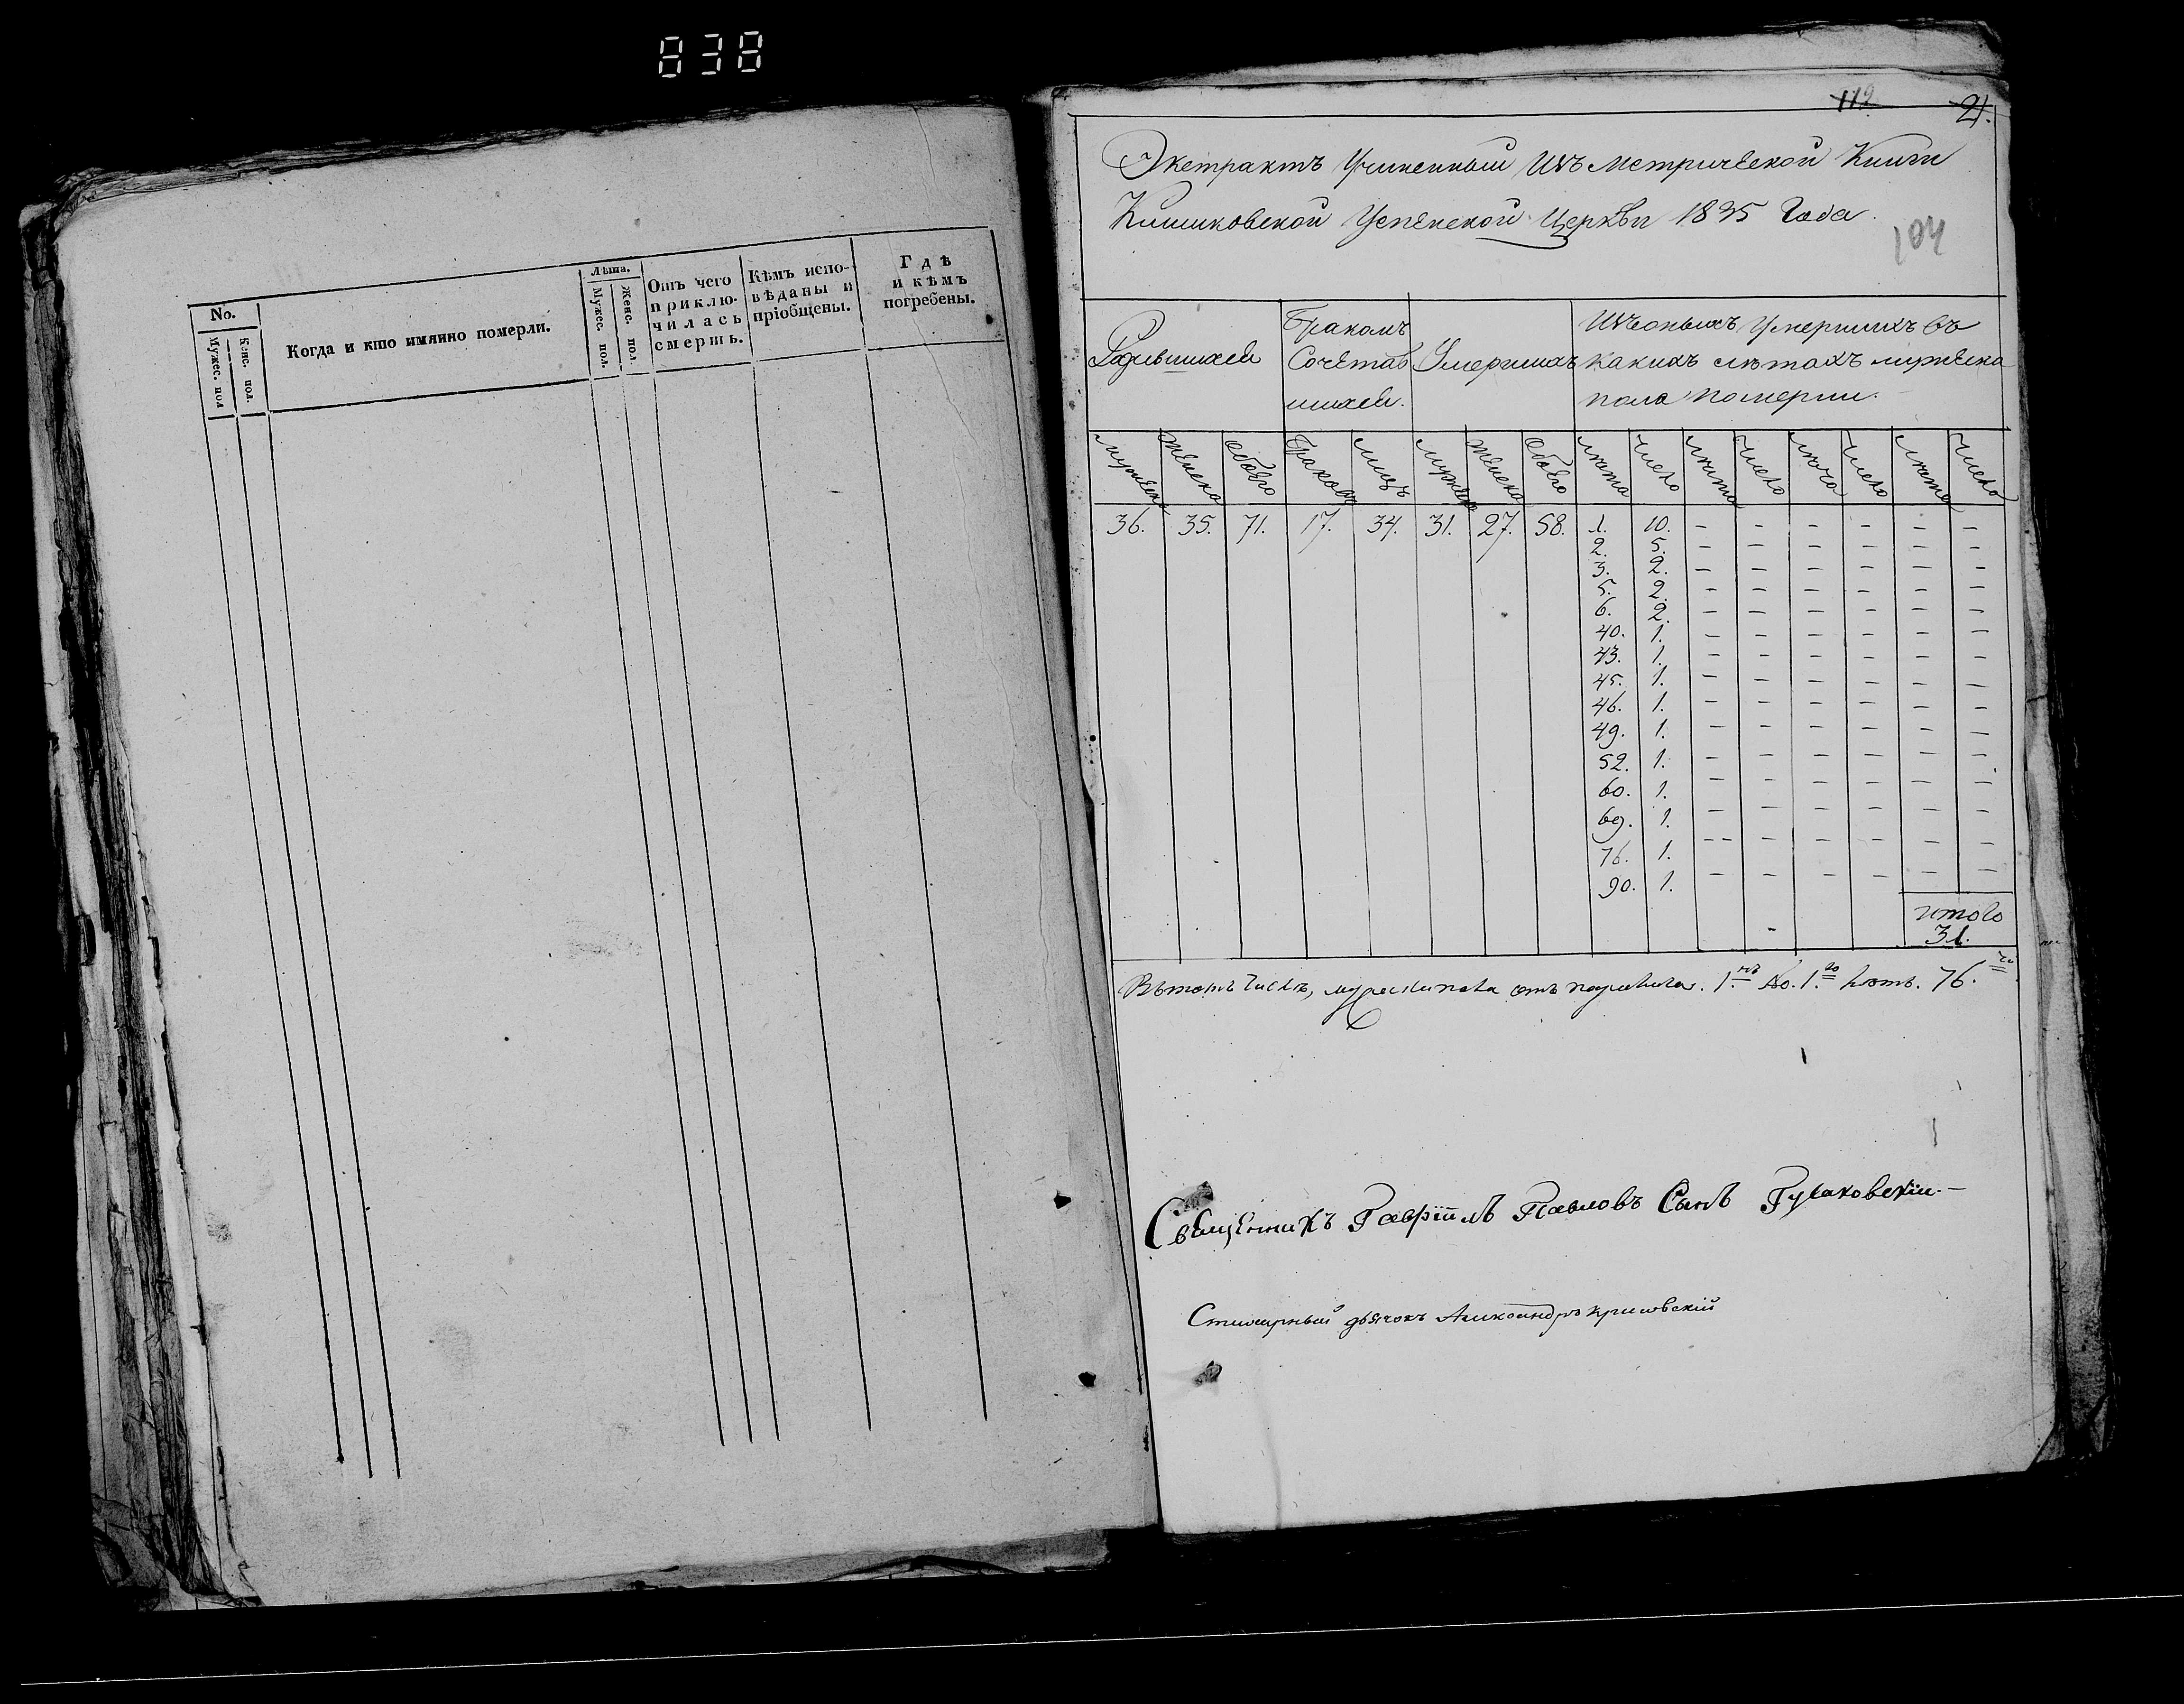 838
No.
Мужес. пол
Женс. пол.
Когда и кто имянно померли.
Лѣта.
Мужес. пол.
Женс. пол.
Отъ чего
приклю-
чилась
смерть.
Кѣмъ испо-
вѣданы и
пріобщены.
Гдѣ
и кѣмъ
погребены.
112 21.
Экстрактъ Учиненный Изъ Метрической Книги
Кишковской Успенской Церкви 1835 Года.
104
Родившихся
Бракомъ
Сочетав
шихся.
Умершихъ
Изъ оныхъ Умершихъ въ
какихъ лѣтахъ мужеска
пола померли.
мужеск женска обоего браковъ лицъ мужеск женска обоего лѣта число лѣта число лѣта число лѣта число
36. 35. 71. 17. 34. 31. 27. 58. 1. 10. – – – – – –
2. 5. – – – – – –
3. 2. – – – – – –
5. 2. – – – – – –
6. 2. – – – – – –
40. 1. – – – – – –
43. 1. – – – – – –
45. 1. – – – – – –
46. 1. – – – – – –
49. 1. – – – – – –
52. 1. – – – – – –
60. 1. – – – – – –
69. 1. – – – – – –
76. 1. – – – – – –
90. 1. – – – – – –
итого
31.
Въ томъ числѣ, отъ 1. до. 1.го 76.
Священникъ Гавріилъ Павловъ Сынъ
дьячокъ Александръ